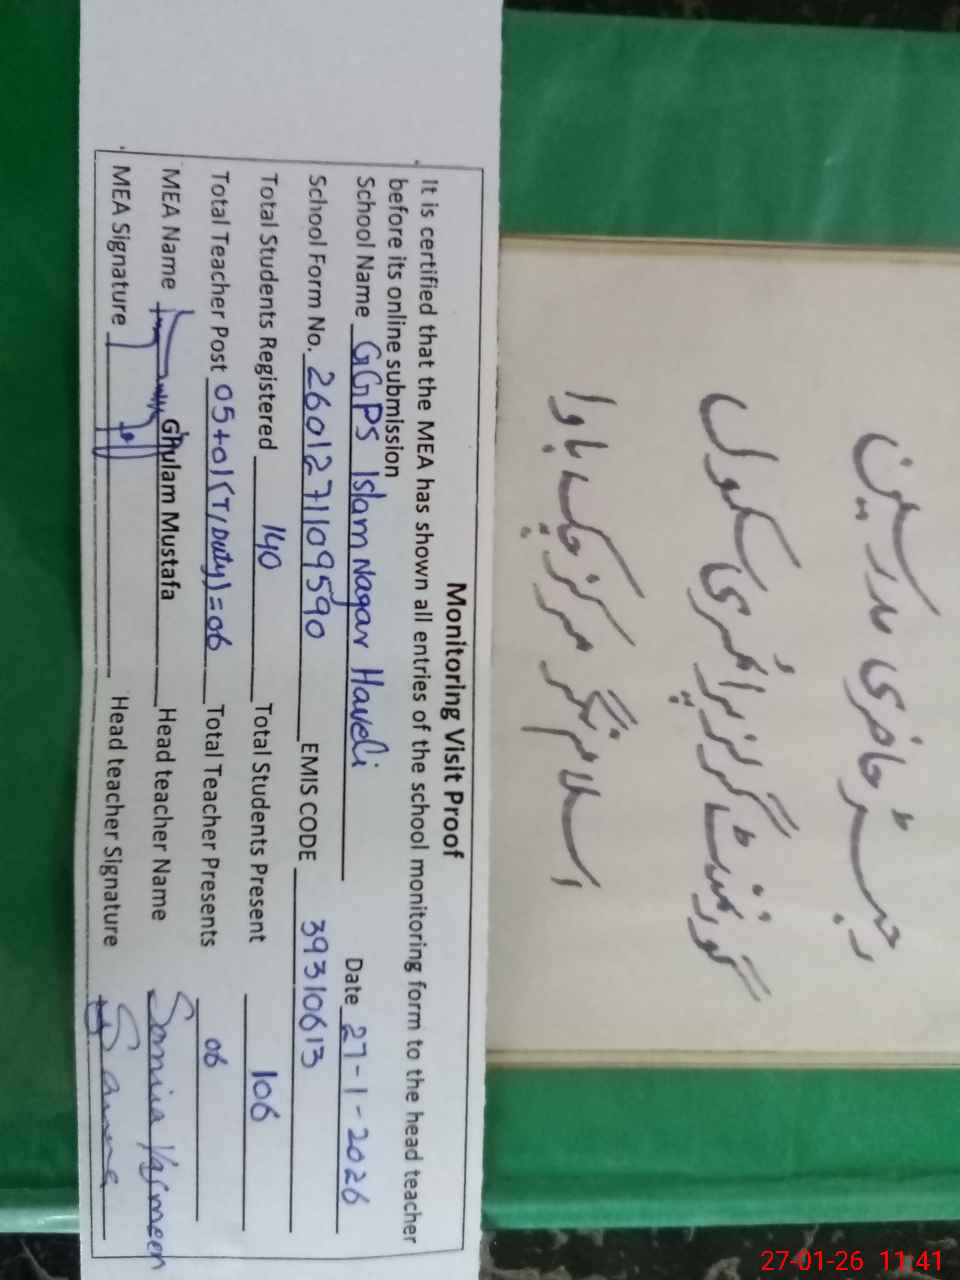 رجسٹر حاضری مدرسین
گورنمنٹ گرلز پرائمری سکول
اسلام نگر مرکز چک باوا
Monitoring Visit Proof
It is certified that the MEA has shown all entries of the school monitoring form to the head teacher
before its online submission
School Name GGPS Islam Nagar Haveli Date 27-1-2026
School Form No. 260127109590 EMIS CODE 39310613
Total Students Registered 140 Total Students Present 106
Total Teacher Post 05+01(T/Duty)=06 Total Teacher Presents 06
MEA Name Ghulam Mustafa Head teacher Name Samina Yasmeen
MEA Signature Head teacher Signature
27-01-26 11:41